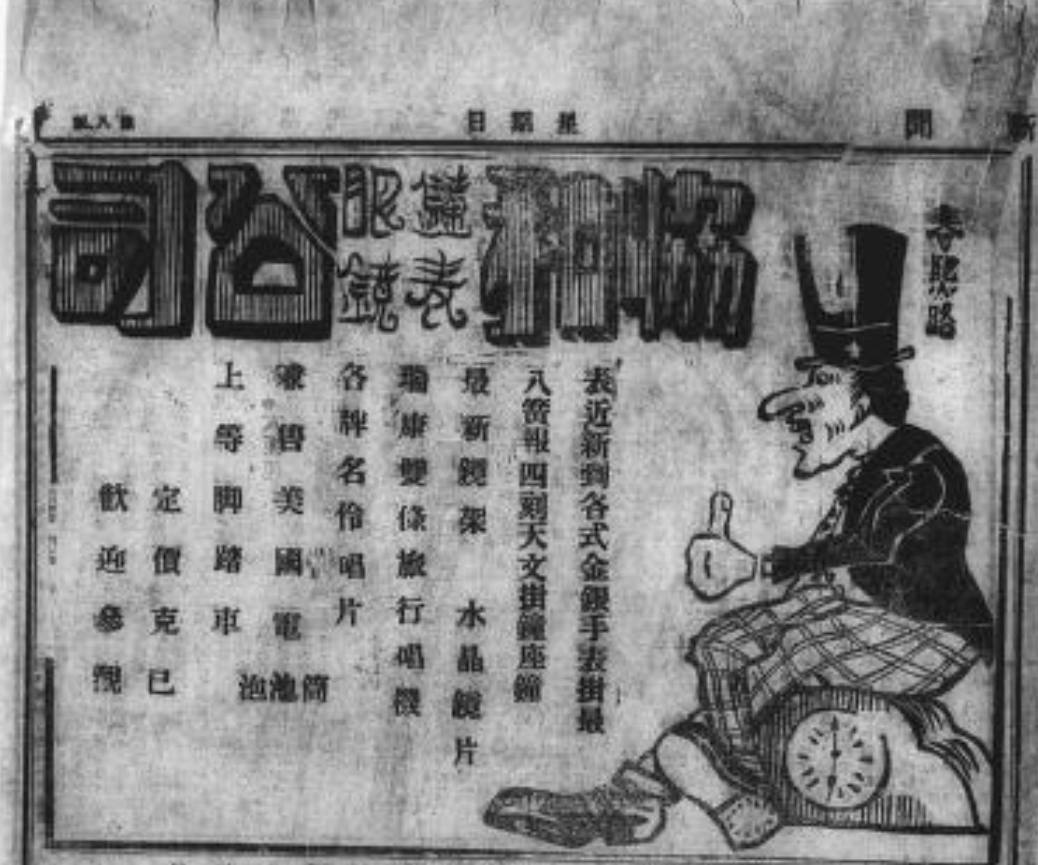 新聞
星期日
春熙路
協和鐘表眼鏡公司
表近新到各式金銀手表掛最
八簧報四刻天文掛鐘座鐘
最新鏡架 水晶鏡片
瑞康雙條旅行唱機
各牌名伶唱片
兼售美國電筒池泡
上等脚踏車
定價克已
歡迎參觀